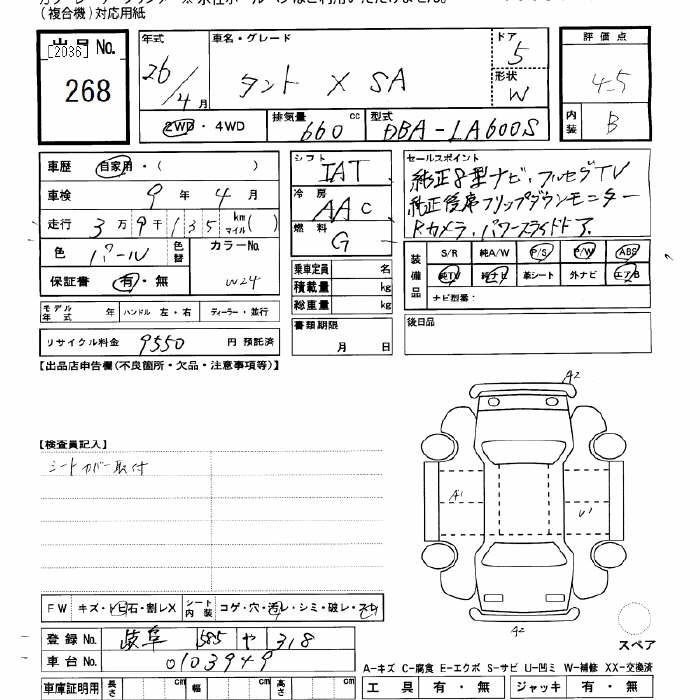 (複合機)対応用紙
出品No. [2036] 268
年式 26/4月
車名・グレード タント X SA
ドア 5
形状 W
2WD・4WD
排気量 660 cc
型式 DBA-LA600S
評価点 4.5
内装 B
車歴 自家用・( )
車検 9年4月
走行 3万9千135 km マイル( )
色 パール 色替
カラーNo. W24
保証書 有・無
モデル年式 年 ハンドル 左・右 ディーラー・並行
リサイクル料金 9550 円 預託済
シフト IAT
冷房 AAC
燃料 G
乗車定員 名
積載量 kg
総重量 kg
書類期限 月 日
セールスポイント
純正8型ナビ、フルセグTV
純正後席フリップダウンモニター
Rカメラ、パワースライドドア
装備品 S/R 純A/W P/S P/W ABS
純TV 純ナビ 革シート 外ナビ エアB
ナビ型番:
後日品
【出品店申告欄(不良箇所・欠品・注意事項等)】
【検査員記入】
シートカバー取付
A2
A1
U1
A2
スペア
FW キズ・トビ石・割レX シート内装 コゲ・穴・汚レ・シミ・破レ・スレ
登録No. 岐阜 585 や 318
車台No. 0103949
A-キズ C-腐食 E-エクボ S-サビ U-凹ミ W-補修 XX-交換済
車庫証明用 長さ cm 幅 cm 高さ cm
工具 有・無 ジャッキ 有・無